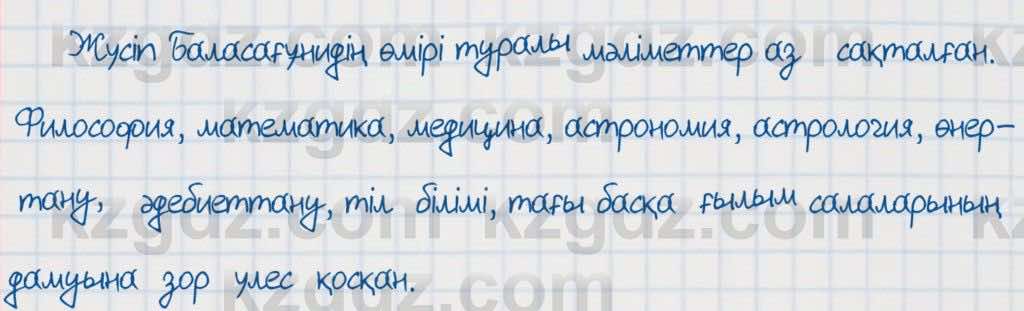 Жүсіп Баласағұнидің өмірі туралы мәліметтер аз сақталған.
Философия, математика, медицина, астрономия, астрология, өнер-
тану, әдебиеттану, тіл білімі, тағы басқа ғылым салаларының
дамуына зор үлес қосқан.